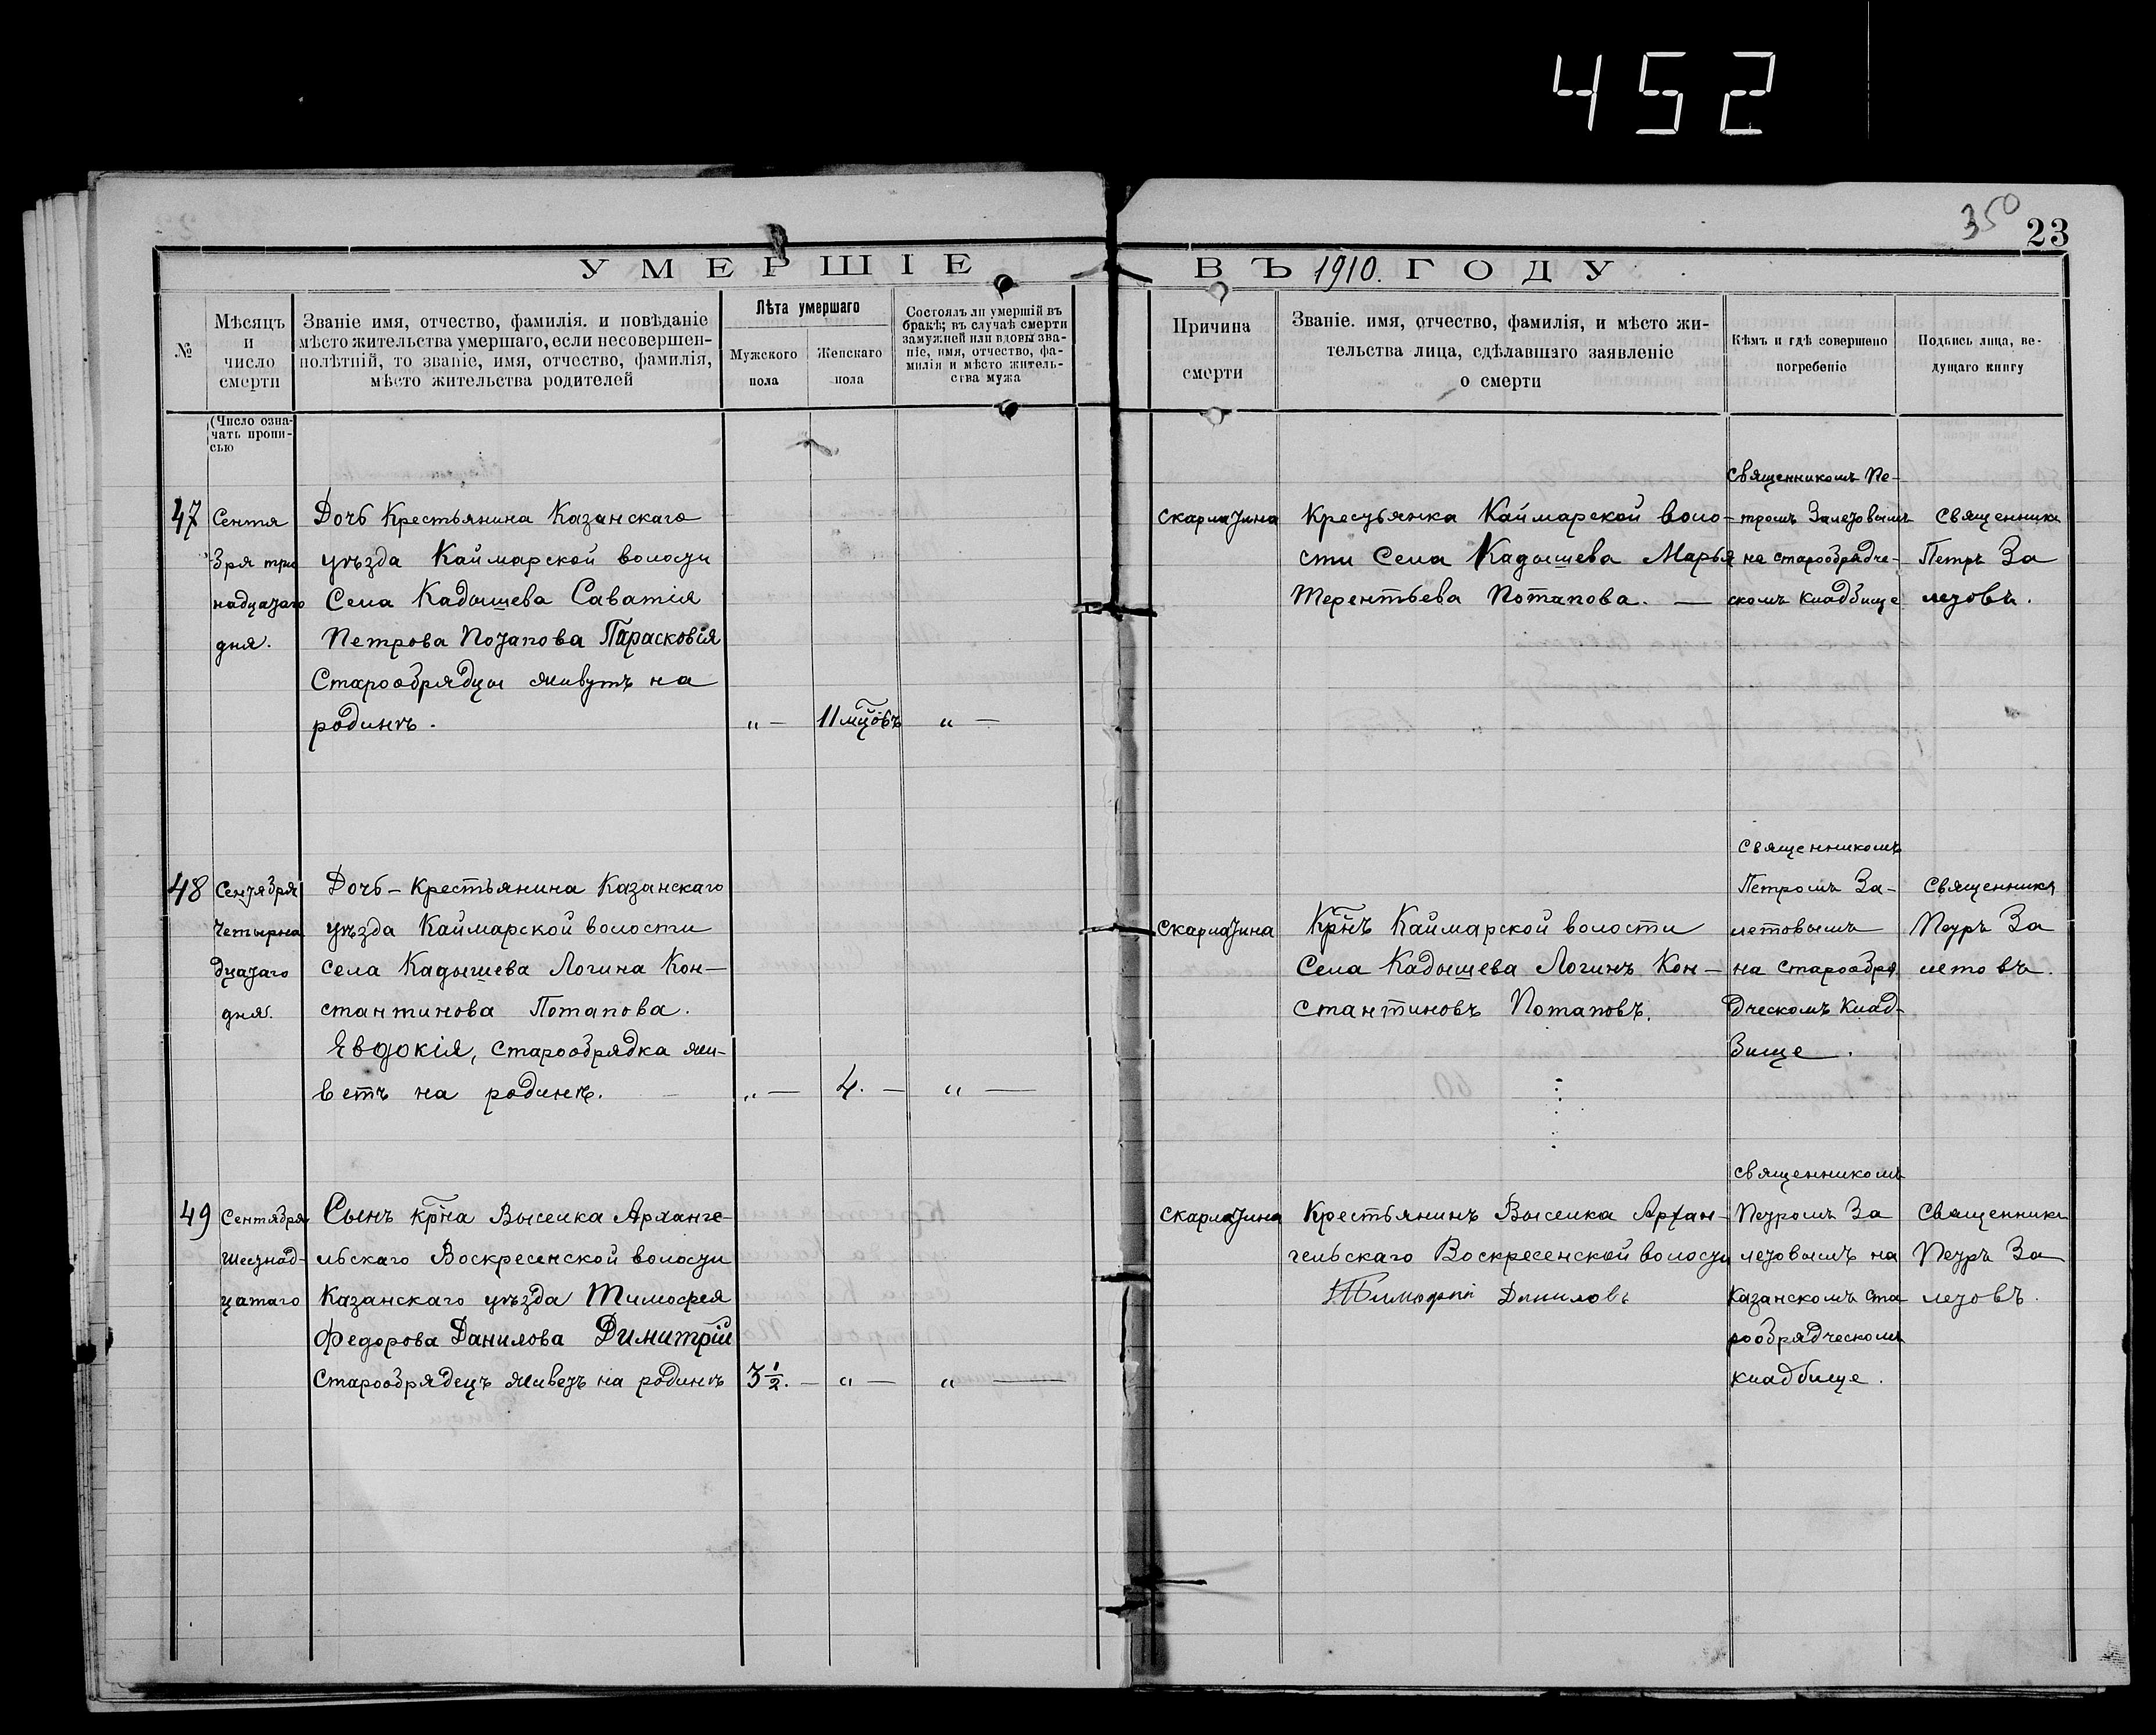 452
350
23
УМЕРШІЕ
ВЪ 1910. ГОДУ
№
Мѣсяцъ
и
число
смерти
Званіе имя, отчество, фамилія. и повѣданіе
мѣсто жительства умершаго, если несовершен-
нолѣтній, то званіе, имя, отчество, фамилія,
мѣсто жительства родителей
Лѣта умершаго
Мужского
пола
Женскаго
пола
Состоялъ ли умершій въ
бракѣ; въ случаѣ смерти
замужней или вдовы зва-
ніе, имя, отчество, фа-
милія и мѣсто житель-
ства мужа
Причина
смерти
Званіе. имя, отчество, фамилія, и мѣсто жи-
тельства лица, сдѣлавшаго заявленіе
о смерти
Кѣмъ и гдѣ совершено
погребеніе
Подпись лица, ве-
дущаго книгу
(Число озна-
чать пропи-
сью
47
Сентя
бря три
надцатаго
дня.
Дочь Крестьянина Казанскаго
уѣзда Каймарской волости
Села Кадышева Саватія
Петрова Потапова Парасковія
Старообрядцы живутъ на
родинѣ.
„ —
11 мцовъ
„ —
скарлатина
Крестьянка Каймарской воло-
сти Села Кадышева Марья
Терентьева Потапова. —
священникомъ Пе-
тромъ Залетовымъ
на старообрядче-
скомъ кладбище
Священникъ
Петръ За
летовъ.
48
Сентября
четырна
дцатаго
дня.
Дочь - Крестьянина Казанскаго
уѣзда Каймарской волости
села Кадышева Логина Кон-
стантинова Потапова.
Евдокія, старообрядка жи-
ветъ на родинѣ.
„ —
4. —
„ —
скарлатина
Крнъ Каймарской волости
Села Кадышева Логинъ Кон-
стантиновъ Потаповъ.
священникомъ
Петромъ За-
летовымъ
на старообря
дческомъ клад-
бище.
Священникъ
Петръ За
летовъ.
49
Сентября
шестнад-
цатаго
Сынъ крна Выселка Арханге-
льскаго Воскресенской волости
Казанскаго уѣзда Тимофея
Федорова Данилова Димитрій
Старообрядецъ живетъ на родинѣ
3 1/2. —
„ —
„ —
скарлатина
Крестьянинъ Выселка Архан-
гельскаго Воскресенской волости
Тимофей Даниловъ
священникомъ
Петромъ За
летовымъ на
Казанскомъ ста
рообрядческомъ
кладбище.
Священникъ
Петръ За
летовъ.